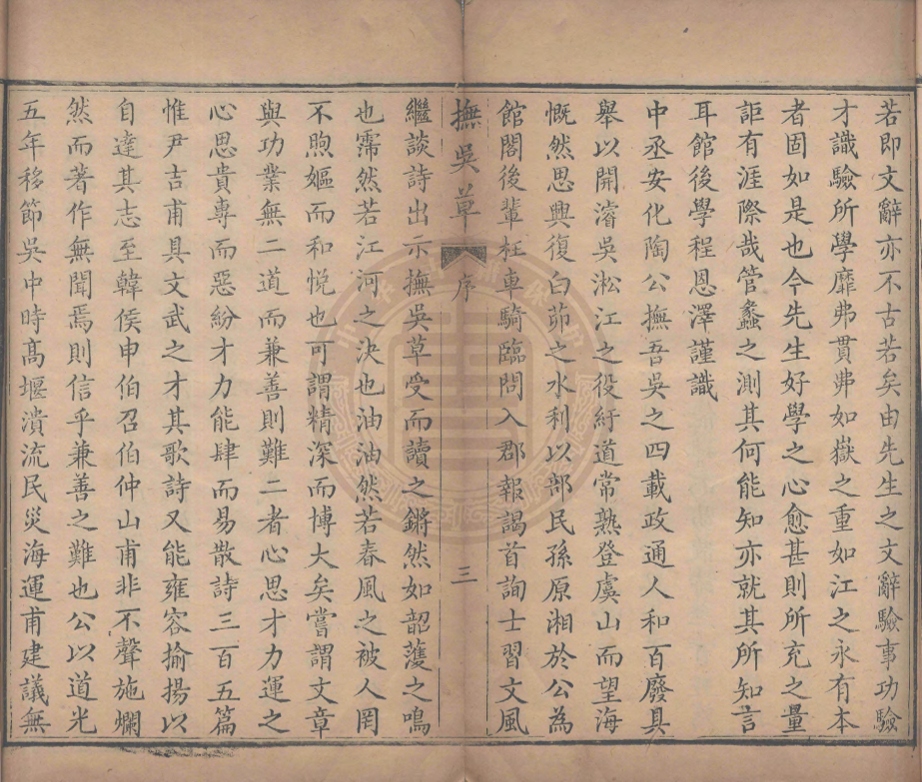 若即文辭亦不古若矣由先生之文辭驗事功驗
才識驗所學靡弗貫弗如嶽之重如江之永有本
者固如是也今先生好學之心愈甚則所充之量
詎有涯際哉管蠡之測其何能知亦就其所知言
耳館後學程恩澤謹識
中丞安化陶公撫吾吳之四載政通人和百廢具
舉以開濬吳淞江之役紆道常熟登虞山而望海
慨然思興復白茆之水利以部民孫原湘於公為
館閣後輩枉車騎臨問入郡報謁首詢士習文風
撫吳草
序
三
繼談詩出示撫吳草受而讀之鏘然如韶頀之鳴
也霈然若江河之決也油油然若春風之被人罔
不煦嫗而和悅也可謂精深而博大矣嘗謂文章
與功業無二道而兼善則難二者心思才力運之
心思貴專而惡紛才力能肆而易散詩三百五篇
惟尹吉甫具文武之才其歌詩又能雍容揄揚以
自達其志至韓侯申伯召伯仲山甫非不聲施爛
然而著作無聞焉則信乎兼善之難也公以道光
五年移節吳中時高堰潰流民災海運甫建議無